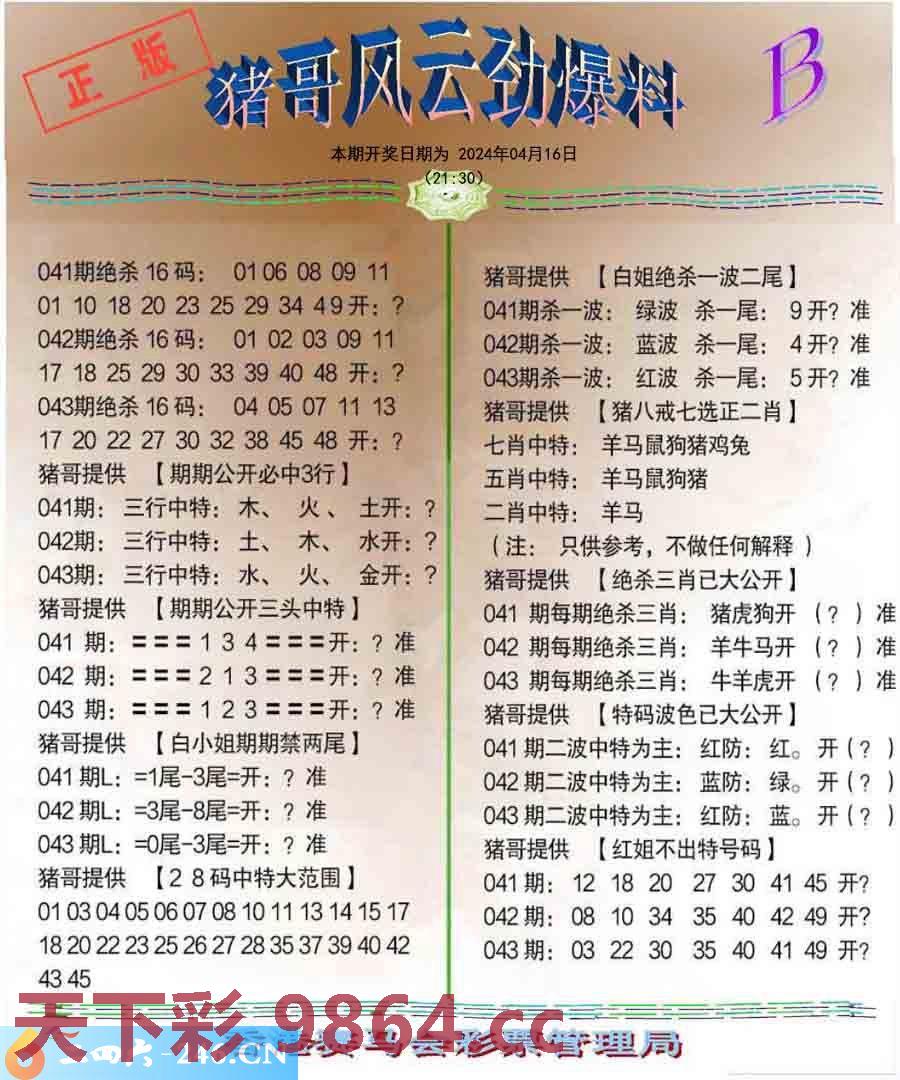 正版
猪哥风云劲爆料
B
本期开奖日期为 2024年04月16日
(21:30)
041期绝杀16码： 01 06 08 09 11
01 10 18 20 23 25 29 34 49开：?
042期绝杀16码： 01 02 03 09 11
17 18 25 29 30 33 39 40 48 开：?
043期绝杀16码： 04 05 07 11 13
17 20 22 27 30 32 38 45 48 开：?
猪哥提供 【期期公开必中3行】
041期：三行中特：木、 火、 土开：?
042期：三行中特：土、 木、 水开：?
043期：三行中特：水、 火、 金开：?
猪哥提供 【期期公开三头中特】
041 期：〓〓〓1 3 4〓〓〓开：? 准
042 期：〓〓〓2 1 3〓〓〓开：? 准
043 期：〓〓〓1 2 3〓〓〓开：? 准
猪哥提供 【白小姐期期禁两尾】
041期L：=1尾-3尾=开：? 准
042期L：=3尾-8尾=开：? 准
043期L：=0尾-3尾=开：? 准
猪哥提供 【28码中特大范围】
01 03 04 05 06 07 08 10 11 13 14 15 17
18 20 22 23 25 26 27 28 35 37 39 40 42
43 45
猪哥提供 【白姐绝杀一波二尾】
041期杀一波： 绿波 杀一尾： 9开? 准
042期杀一波： 蓝波 杀一尾： 4开? 准
043期杀一波： 红波 杀一尾： 5开? 准
猪哥提供 【猪八戒七选正二肖】
七肖中特： 羊马鼠狗猪鸡兔
五肖中特： 羊马鼠狗猪
二肖中特： 羊马
（注： 只供参考，不做任何解释 ）
猪哥提供 【绝杀三肖已大公开】
041 期每期绝杀三肖： 猪虎狗开 （? ）准
042 期每期绝杀三肖： 羊牛马开 （? ）准
043 期每期绝杀三肖： 牛羊虎开 （? ）准
猪哥提供 【特码波色已大公开】
041期二波中特为主： 红防： 红。 开(? )
042期二波中特为主： 蓝防： 绿。 开(? )
043期二波中特为主： 红防： 蓝。 开(? )
猪哥提供 【红姐不出特号码】
041期： 12 18 20 27 30 41 45 开?
042期： 08 10 34 35 40 42 49 开?
043期： 03 22 30 35 40 41 49 开?
天下彩 9864.cc
二四六-246.CN
赛马会彩票管理局